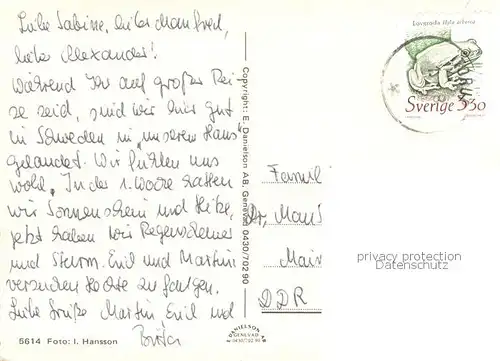 Liebe Sabine, lieber Manfred,
lieber Alexander!
Während Ihr auf großer Rei-
se seid, sind wir hier gut
in Schweden in „unserem Haus"
gelandet. Wir fühlen uns
wohl. In der 1. Woche hatten
wir Sonnenschein und Hitze,
jetzt haben wir Regenschauer
und Sturm. Emil und Martin
versuchen Hechte zu fangen.
Liebe Grüße Martin Emil und
Britta
5614 Foto: I. Hansson
Copyright: E. Danielson AB, Genevad 0430/702 90
DANIELSON
GENEVAD
0430/702 90
Lövgroda Hyla arborea
Sverige 3.30
Famil
Dr. Man
Mair
DDR
privacy protection
Datenschutz